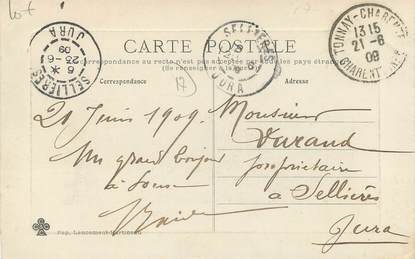 lot
CARTE POSTALE
La correspondance au recto n'est pas acceptée par tous les pays étrangers
(Se renseigner à la
Correspondance
Adresse
SELLIÈRES
6 *
23 -6
09
JURA
SELLIÈRES
JURA
TONNAY-CHARENTE
13 15
21 -6
09
CHARENTE INFRE
12
21 Juin 1909.
Un grand bonjour
à tous
Monsieur
Durand
propriétaire
à Sellières
Jura